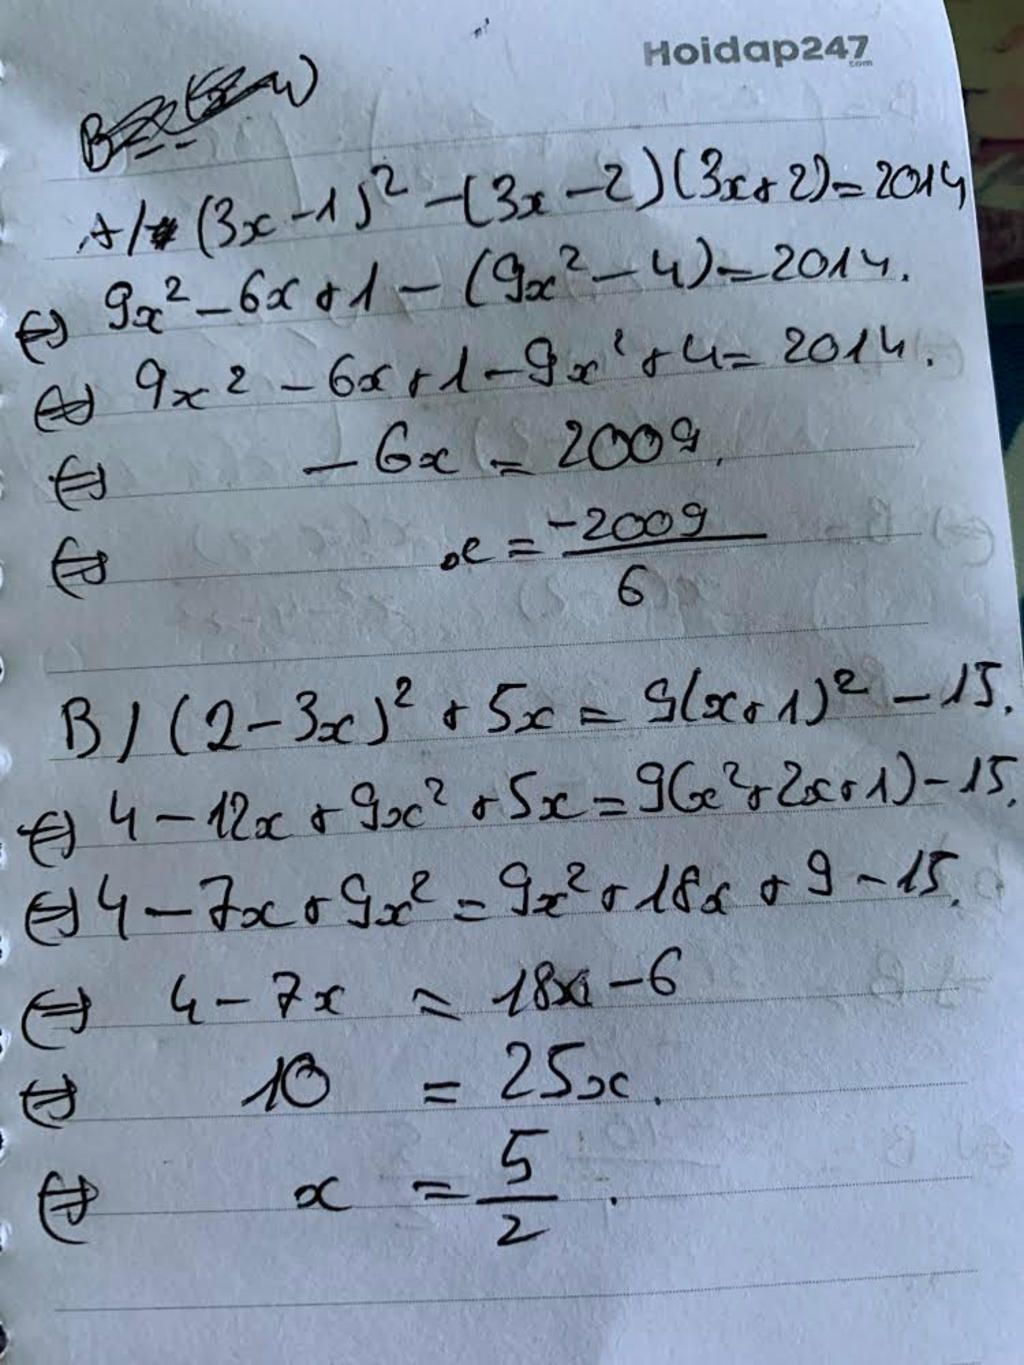 Hoidap247
.com
A/ (3x-1)² -(3x-2)(3x+2)=2014
⇔ 9x²-6x+1-(9x²-4)=2014.
⇔ 9x²-6x+1-9x²+4=2014.
⇔ -6x = 2009.
⇔ x = -2009/6
B/ (2-3x)²+5x=9(x+1)²-15.
⇔ 4-12x+9x²+5x=9(x²+2x+1)-15.
⇔ 4-7x+9x²=9x²+18x+9-15.
⇔ 4-7x = 18x-6
⇔ 10 = 25x.
⇔ x = 5/2.